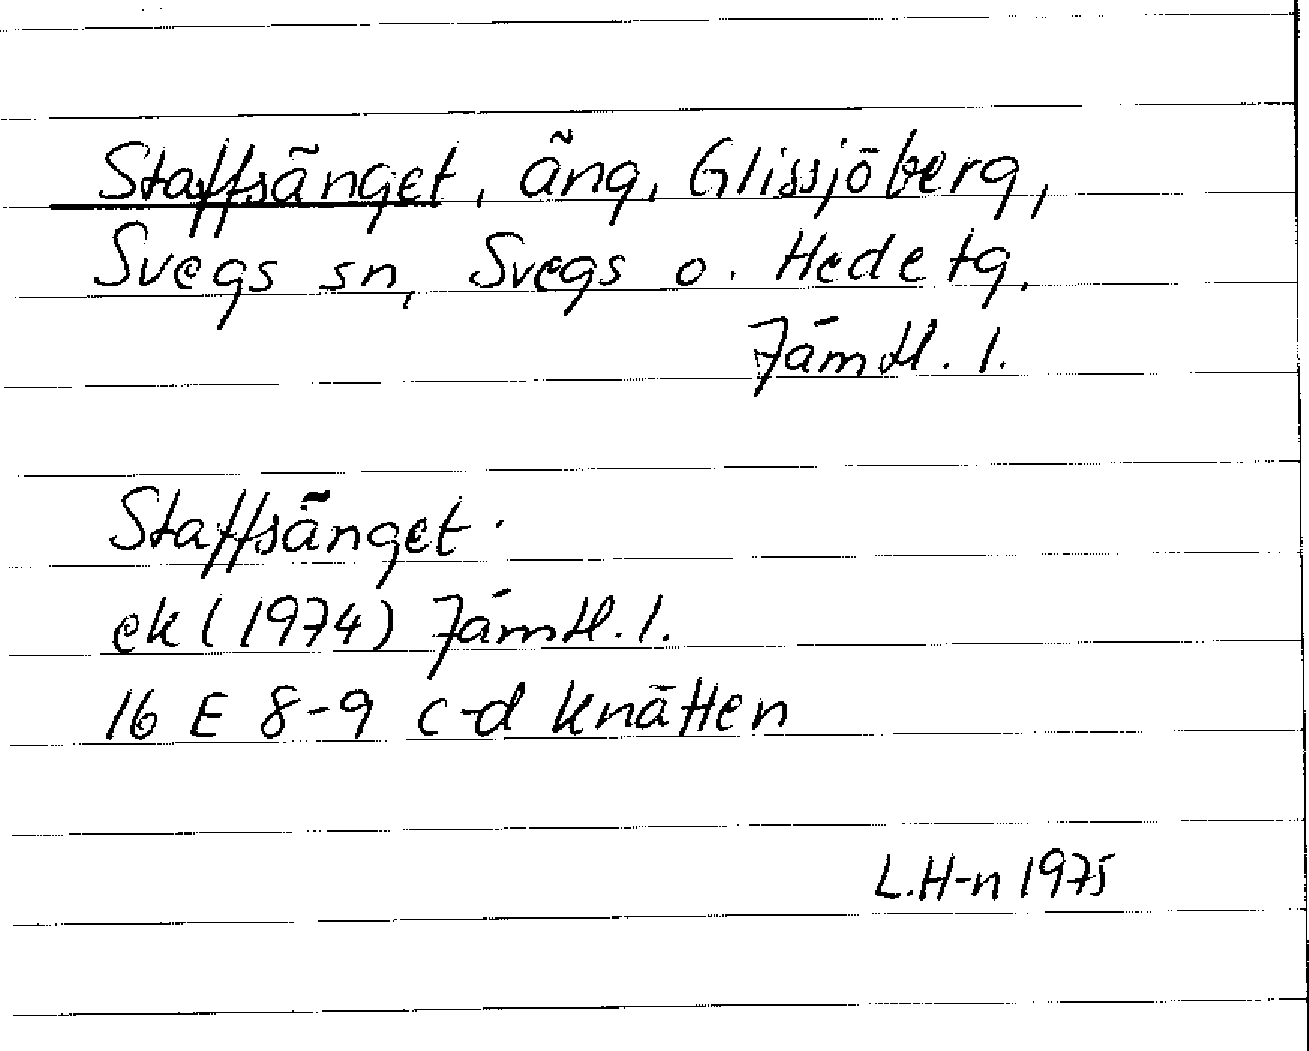 Staffsänget, äng, Glissjöberg,
Svegs sn, Svegs o. Hede tg.
Jämtl. l.
Staffsänget.
ek (1974) Jämtl. l.
16 E 8-9 c-d Knätten
L.H-n 1975